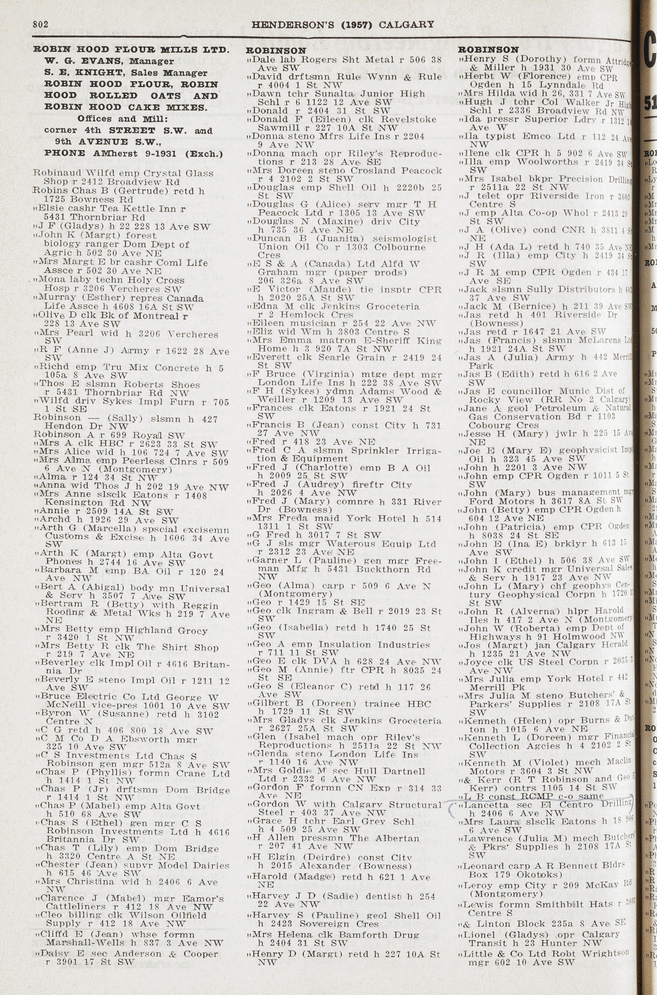 802
HENDERSON'S (1957) CALGARY
ROBIN HOOD FLOUR MILLS LTD.
W. G. EVANS, Manager
S. E. KNIGHT, Sales Manager
ROBIN HOOD FLOUR, ROBIN
HOOD ROLLED OATS AND
ROBIN HOOD CAKE MIXES.
Offices and Mill:
corner 4th STREET S.W. and
9th AVENUE S.W.,
PHONE AMherst 9-1931 (Exch.)
Robinaud Wilfd emp Crystal Glass
Shop r 2412 Broadview Rd
Robins Chas B (Gertrude) retd h
1725 Bowness Rd
„Elsie cashr Tea Kettle Inn r
5431 Thornbriar Rd
„J F (Gladys) h 22 228 13 Ave SW
„John K (Margt) forest
biology ranger Dom Dept of
Agric h 502 30 Ave NE
„Mrs Margt E br cashr Coml Life
Assce r 502 30 Ave NE
„Mona laby techn Holy Cross
Hosp r 3206 Vercheres SW
„Murray (Esther) repres Canada
Life Assce h 4608 16A St SW
„Olive D clk Bk of Montreal r
228 13 Ave SW
„Mrs Pearl wid h 3206 Vercheres
SW
„R F (Anne J) Army r 1622 28 Ave
SW
„Richd emp Tru Mix Concrete h 5
105a 8 Ave SW
„Thos E slsmn Roberts Shoes
r 5431 Thornbriar Rd NW
„Wilfd driv Sykes Impl Furn r 705
1 St SE
Robinson — (Sally) slsmn h 427
Hendon Dr NW
Robinson A r 699 Royal SW
„Mrs A clk HBC r 2623 33 St SW
„Mrs Alice wid h 106 724 7 Ave SW
„Mrs Alma emp Peerless Clnrs r 509
6 Ave N (Montgomery)
„Alma r 124 34 St NW
„Anna wid Thos J h 202 19 Ave NW
„Mrs Anne slsclk Eatons r 1408
Kensington Rd NW
„Annie r 2509 14A St SW
„Archd h 1926 29 Ave SW
„Arth G (Marcella) special excisemn
Customs & Excise h 1606 34 Ave
SW
„Arth K (Margt) emp Alta Govt
Phones h 2744 16 Ave SW
„Barbara M emp BA Oil r 120 24
Ave NW
„Bert A (Abigal) body mn Universal
& Serv h 3507 7 Ave SW
„Bertram R (Betty) with Reggin
Roofing & Metal Wks h 219 7 Ave
NE
„Mrs Betty emp Highland Grocy
r 3420 1 St NW
„Mrs Betty R clk The Shirt Shop
r 219 7 Ave NE
„Beverley clk Impl Oil r 4616 Britan-
nia Dr
„Beverly E steno Impl Oil r 1211 12
Ave SW
„Bruce Electric Co Ltd George W
McNeill vice-pres 1001 10 Ave SW
„Byron W (Susanne) retd h 3102
Centre N
„C G retd h 406 800 18 Ave SW
„C M Co D A Ebsworth mgr
325 10 Ave SW
„C S Investments Ltd Chas S
Robinson gen mgr 512a 8 Ave SW
„Chas P (Phyllis) formn Crane Ltd
h 1414 1 St NW
„Chas P (Jr) drftsmn Dom Bridge
r 1414 1 St NW
„Chas P (Mabel) emp Alta Govt
h 510 68 Ave SW
„Chas S (Ethel) gen mgr C S
Robinson Investments Ltd h 4616
Britannia Dr SW
„Chas T (Lily) emp Dom Bridge
h 3320 Centre A St NE
„Chester (Jean) supvr Model Dairies
h 615 46 Ave SW
„Mrs Christina wid h 2406 6 Ave
NW
„Clarence J (Mabel) mgr Eamor's
Cattleliners r 412 18 Ave NW
„Cleo billing clk Wilson Oilfield
Supply r 412 18 Ave NW
„Cliffd E (Jean) whse formn
Marshall-Wells h 837 3 Ave NW
„Daisy E sec Anderson & Cooper
r 3901 17 St SW
ROBINSON
„Dale lab Rogers Sht Metal r 506 38
Ave SW
„David drftsmn Rule Wynn & Rule
r 4004 1 St NW
„Dawn tchr Sunalta Junior High
Schl r 6 1122 12 Ave SW
„Donald r 2404 31 St SW
„Donald F (Eileen) clk Revelstoke
Sawmill r 227 10A St NW
„Donna steno Mfrs Life Ins r 2204
9 Ave NW
„Donna mach opr Riley's Reproduc-
tions r 213 28 Ave SE
„Mrs Doreen steno Crosland Peacock
r 4 2102 2 St SW
„Douglas emp Shell Oil h 2220b 25
St SW
„Douglas G (Alice) serv mgr T H
Peacock Ltd r 1305 13 Ave SW
„Douglas N (Maxine) driv City
h 735 36 Ave NE
„Duncan B (Juanita) seismologist
Union Oil Co r 1503 Colbourne
Cres
„E S & A (Canada) Ltd Alfd W
Graham mgr (paper prods)
206 326a 8 Ave SW
„E Victor (Maude) tie insptr CPR
h 2020 25A St SW
„Edna M clk Jenkins Groceteria
r 2 Hemlock Cres
„Eileen musician r 254 22 Ave NW
„Eliz wid Wm h 3803 Centre S
„Mrs Emma matron E-Sheriff King
Home h 3 920 7A St NW
„Everett clk Searle Grain r 2419 24
St SW
„F Bruce (Virginia) mtge dept mgr
London Life Ins h 222 38 Ave SW
„F H (Sykes) gdnr Adams Wood &
Weiller r 1209 13 Ave SW
„Frances clk Eatons r 1921 24 St
SW
„Francis B (Jean) const City h 731
27 Ave NW
„Fred r 418 23 Ave NE
„Fred C A slsmn Sprinkler Irriga-
tion & Equipment
„Fred J (Charlotte) emp B A Oil
h 2009 25 St SW
„Fred J (Audrey) fireftr City
h 2026 4 Ave NW
„Fred J (Mary) comnre h 331 River
Dr (Bowness)
„Mrs Freda maid York Hotel h 514
1311 1 St SW
„G Fred h 3017 7 St SW
„G J sls mgr Waterous Equip Ltd
r 2312 23 Ave NE
„Garner L (Pauline) gen mgr Free-
man Mfg h 5431 Buckthorn Rd
NW
„Geo (Alma) carp r 509 6 Ave N
(Montgomery)
„Geo r 1429 15 St SE
„Geo clk Ingram & Bell r 2019 23 St
SW
„Geo (Isabella) retd h 1740 25 St
SW
„Geo A emp Insulation Industries
r 711 11 St SW
„Geo E clk DVA h 628 24 Ave NW
„Geo M (Annie) ftr CPR h 8035 24
St SE
„Geo S (Eleanor C) retd h 117 26
Ave SW
„Gilbert B (Doreen) trainee HBC
h 1729 11 St SW
„Mrs Gladys clk Jenkins Groceteria
r 2627 25A St SW
„Glen (Isabel) mach opr Riley's
Reproductions h 2511a 22 St NW
„Glenda steno London Life Ins
r 1140 16 Ave NW
„Mrs Goldie M sec Hull Dartnell
Ltd r 2332 6 Ave NW
„Gordon F formn CN Exp r 314 33
Ave NE
„Gordon W with Calgary Structural
Steel r 403 37 Ave SW
„Grace H tchr Earl Grey Schl
h 4 509 25 Ave SW
„H Allen pressmn The Albertan
r 207 41 Ave NW
„H Elgin (Deirdre) const City
h 2015 Alexander (Bowness)
„Harold (Madge) retd h 621 1 Ave
NE
„Harvey J D (Sadie) dentist h 254
22 Ave NW
„Harvey S (Pauline) geol Shell Oil
h 2423 Sovereign Cres
„Mrs Helena clk Bamforth Drug
h 2404 31 St SW
„Henry D (Margt) retd h 227 10A St
NW
ROBINSON
„Henry S (Dorothy) formn Attridge
& Miller h 1931 30 Ave SW
„Herbt W (Florence) emp CPR
Ogden h 15 Lynndale Rd
„Mrs Hilda wid h 26, 331 7 Ave SW
„Hugh J tchr Col Walker Jr High
Schl r 2336 Broadview Rd NW
„Ida pressr Superior Ldry r 1312
Ave W
„Ila typist Emco Ltd r 112 24
NW
„Ilene clk CPR h 5 902 6 Ave SW
„Illa emp Woolworths r 2419 34
SW
„Mrs Isabel bkpr Precision Drilling
r 2511a 22 St NW
„J telet opr Riverside Iron r
Centre S
„J emp Alta Co-op Whol r 2413
St SW
„J A (Olive) cond CNR h 3811
NE
„J H (Ada L) retd h 740 35 Ave
„J R (Illa) emp City h 2419 34
SW
„J R M emp CPR Ogden r 434 17
Ave SE
„Jack slsmn Sully Distributors h
37 Ave SW
„Jack M (Bernice) h 211 39 Ave
„Jas retd h 401 Riverside Dr
(Bowness)
„Jas retd r 1647 21 Ave SW
„Jas (Francis) slsmn McLarens
h 1921 24A St SW
„Jas A (Julia) Army h 442 Merrill
Park
„Jas B (Edith) retd h 616 2 Ave
SW
„Jas E councillor Munic Dist of
Rocky View (RR No 2 Calgary)
„Jane A geol Petroleum & Natural
Gas Conservation Bd r 1103
Cobourg Cres
„Jesse H (Mary) jwlr h 225 15
NE
„Joe E (Mary E) geophysicist
Oil h 323 45 Ave SW
„John h 2201 3 Ave NW
„John emp CPR Ogden r 1011 5
SW
„John (Mary) bus management
Ford Motors h 3617 8A St SW
„John (Betty) emp CPR Ogden h
604 12 Ave NE
„John (Patricia) emp CPR Ogden
h 8038 24 St SE
„John E (Ina E) brklyr h 613 15
Ave SW
„John I (Ethel) h 506 38 Ave SW
„John K credit mgr Universal Sales
& Serv h 1917 23 Ave NW
„John L (Mary) chf geophys Cen-
tury Geophysical Corpn h 1720
St SW
„John R (Alverna) hlpr Harold
Iles h 417 2 Ave N (Montgomery)
„John W (Roberta) emp Dept of
Highways h 91 Holmwood NW
„Jos (Margt) jan Calgary Herald
h 1235 21 Ave NW
„Joyce clk US Steel Corpn r 2035
Ave NW
„Mrs Julia emp York Hotel r 442
Merrill Pk
„Mrs Julia M steno Butchers' &
Parkers' Supplies r 2108 17A
SW
„Kenneth (Helen) opr Burns &
ton h 1015 6 Ave NE
„Kenneth L (Doreen) mgr Financial
Collection Agcies h 4 2102 2
SW
„Kenneth M (Violet) mech Maclin
Motors r 3604 3 St NW
„& Kerr (R T Robinson and Geo
Kerr) contrs 1105 14 St SW
„L B const RCMP c-o same
„Lancetta sec El Centro Drilling
h 2406 6 Ave NW
„Mrs Laura slsclk Eatons h 18
6 Ave SW
„Lawrence (Julia M) mech Butchers
& Pkrs' Supplies r 2108 17A
SW
„Leonard carp A R Bennett Bldrs
Box 179 Okotoks)
„Leroy emp City r 209 McKay Rd
(Montgomery)
„Lewis formn Smithbilt Hats r
Centre S
„& Linton Block 235a 8 Ave SE
„Lionel (Gladys) opr Calgary
Transit h 23 Hunter NW
„Little & Co Ltd Robt Wrightson
mgr 602 10 Ave SW
C
51